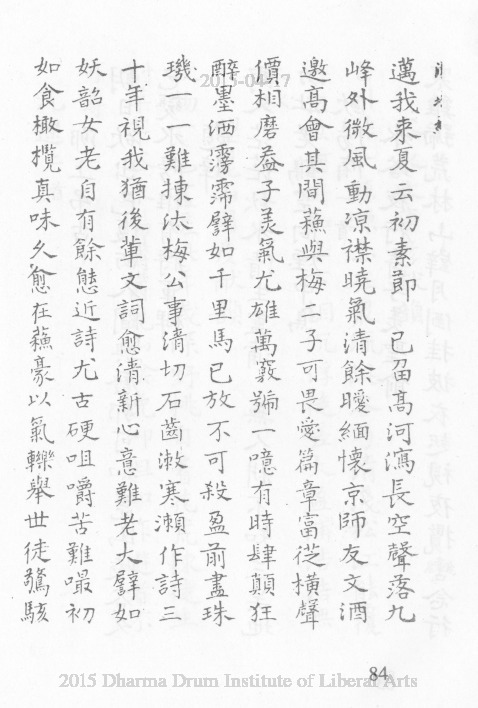 邁我来夏云初素節今已留高河瀉長空聲落九
峰外微風動凉襟曉氣清餘曖緬懷京師友文酒
邀高會其間蘓與梅二子可畏愛篇章富從横聲
價相磨盖子美氣尤雄萬竅號一噫有時肆顛狂
醉墨洒霶霈譬如千里馬已放不可殺盈前盡珠
璣一一難揀汰梅公事清切石齒漱寒瀨作詩三
十年視我猶後輩文詞愈清新心意難老大譬如
妖韶女老自有餘態近詩尤古硬咀嚼苦難嘬初
如食橄欖真味久愈在蘓豪以氣轢舉世徒驚駭
2015-04-17
84
2015 Dharma Drum Institute of Liberal Arts